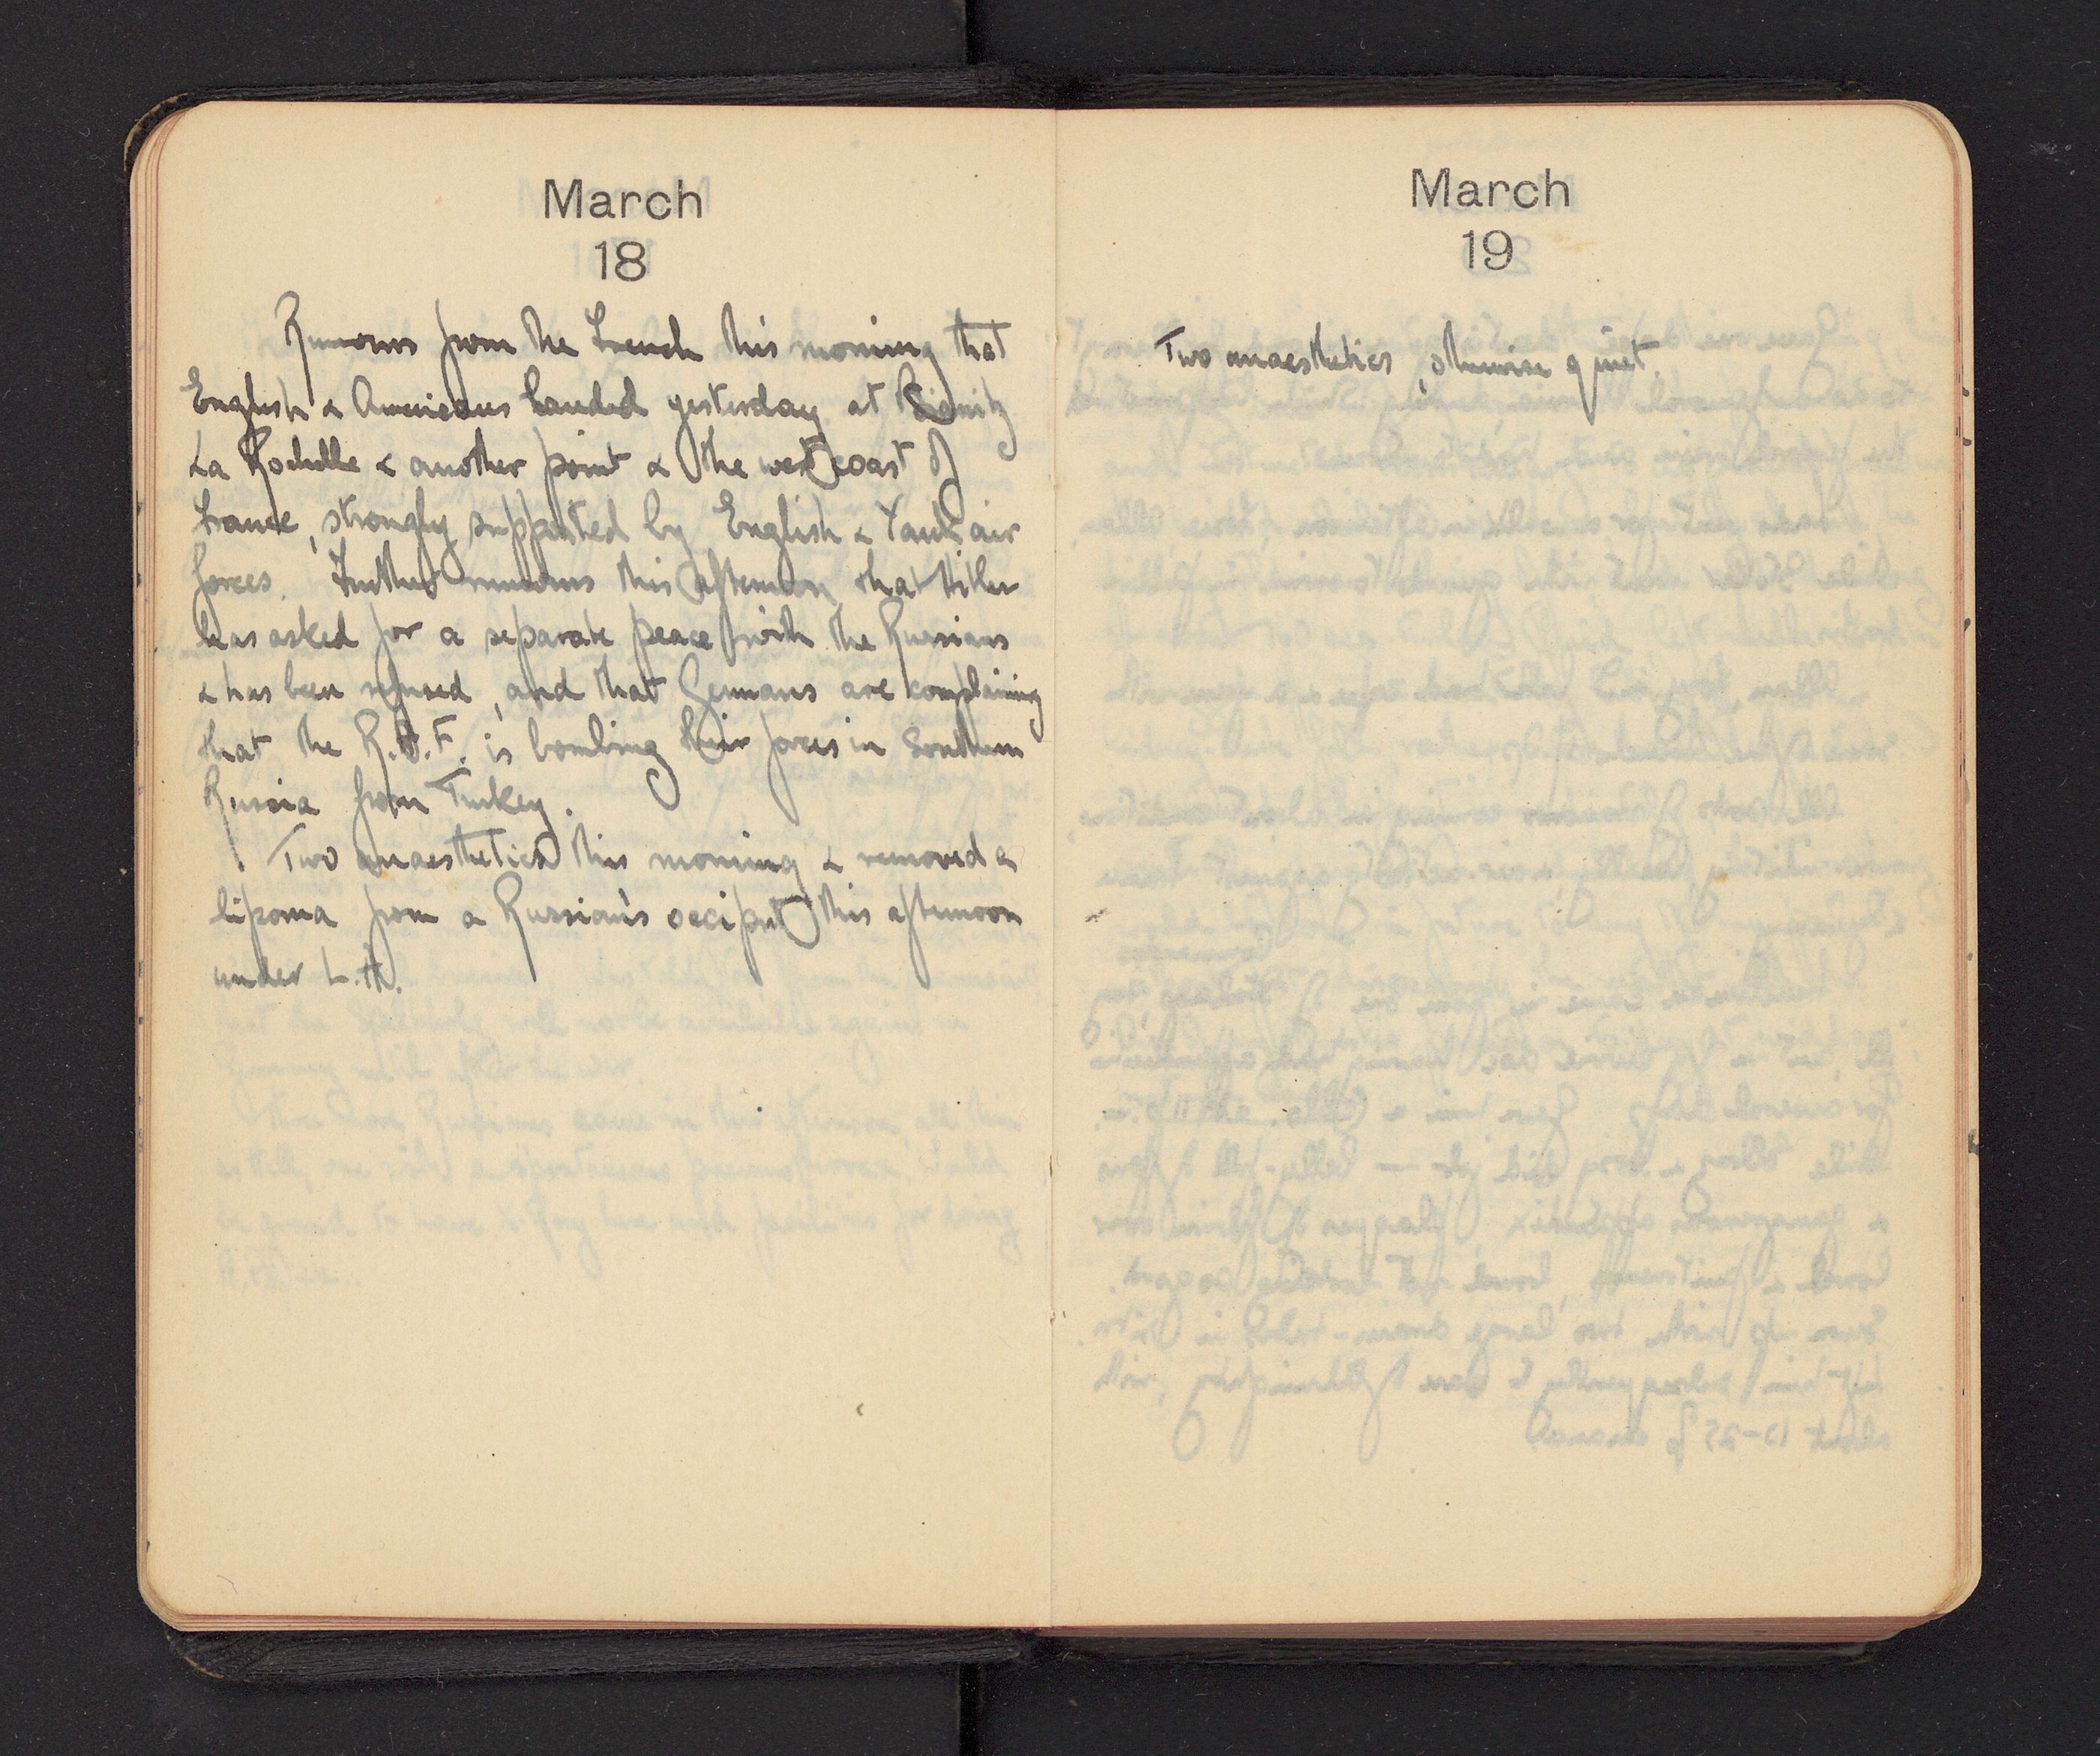 March
18
Rumours from the French this morning that
English & Americans landed yesterday at
La Rochelle & another point & the west coast of
France, strongly supported by English & Yank air
forces. Further rumours this afternoon that Hitler
has asked for a separate peace with the Russians
& has been refused, and that Germans are complaining
that the R.A.F. is bombing their forces in Southern
Russia from Turkey.
Two anaesthetics this morning & removed a
lipoma from a Russian's occiput this afternoon
under L.A.
March
19
Two anaesthetics, otherwise quiet.